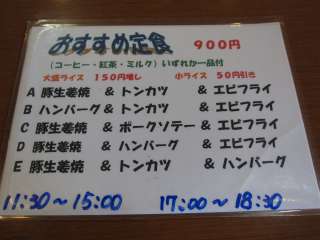 おすすめ定食 900円
(コーヒー・紅茶・ミルク)いずれか一品付
大盛ライス 150円増し 小ライス 50円引き
A 豚生姜焼 & トンカツ & エビフライ
B ハンバーグ & トンカツ & エビフライ
C 豚生姜焼 & ポークソテー & エビフライ
D 豚生姜焼 & ハンバーグ & エビフライ
E 豚生姜焼 & トンカツ & ハンバーグ
11:30〜15:00 17:00〜18:30